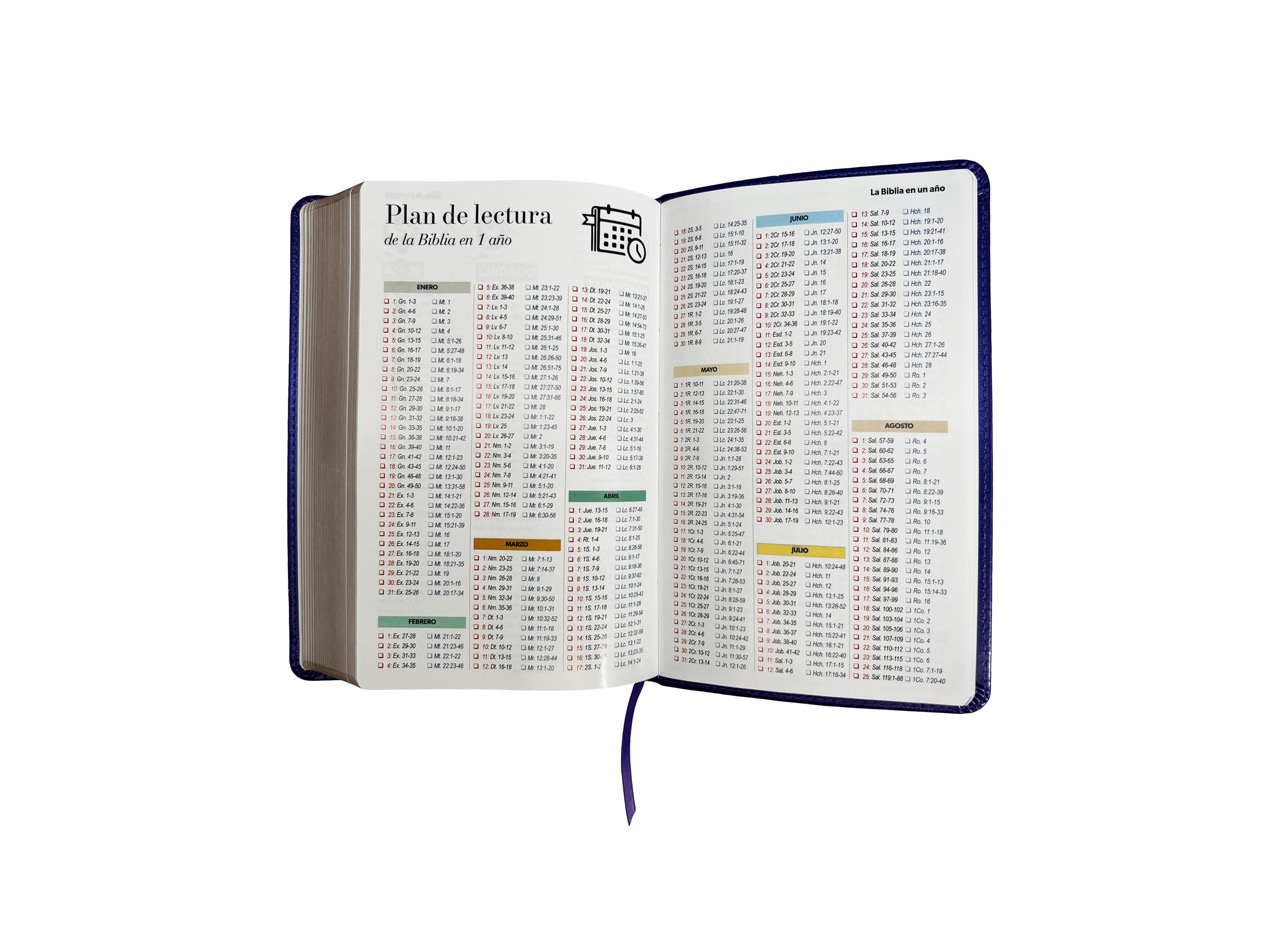 Plan de lectura
de la Biblia en 1 año
ENERO
1: Gn. 1-3 Mt. 1
2: Gn. 4-6 Mt. 2
3: Gn. 7-9 Mt. 3
4: Gn. 10-12 Mt. 4
5: Gn. 13-15 Mt. 5:1-26
6: Gn. 16-17 Mt. 5:27-48
7: Gn. 18-19 Mt. 6:1-18
8: Gn. 20-22 Mt. 6:19-34
9: Gn. 23-24 Mt. 7
10: Gn. 25-26 Mt. 8:1-17
11: Gn. 27-28 Mt. 8:18-34
12: Gn. 29-30 Mt. 9:1-17
13: Gn. 31-32 Mt. 9:18-38
14: Gn. 33-35 Mt. 10:1-20
15: Gn. 36-38 Mt. 10:21-42
16: Gn. 39-40 Mt. 11
17: Gn. 41-42 Mt. 12:1-23
18: Gn. 43-45 Mt. 12:24-50
19: Gn. 46-48 Mt. 13:1-30
20: Gn. 49-50 Mt. 13:31-58
21: Ex. 1-3 Mt. 14:1-21
22: Ex. 4-6 Mt. 14:22-36
23: Ex. 7-8 Mt. 15:1-20
24: Ex. 9-11 Mt. 15:21-39
25: Ex. 12-13 Mt. 16
26: Ex. 14-15 Mt. 17
27: Ex. 16-18 Mt. 18:1-20
28: Ex. 19-20 Mt. 18:21-35
29: Ex. 21-22 Mt. 19
30: Ex. 23-24 Mt. 20:1-16
31: Ex. 25-26 Mt. 20:17-34
FEBRERO
1: Ex. 27-28 Mt. 21:1-22
2: Ex. 29-30 Mt. 21:23-46
3: Ex. 31-33 Mt. 22:1-22
4: Ex. 34-35 Mt. 22:23-46
5: Ex. 36-38 Mt. 23:1-22
6: Ex. 39-40 Mt. 23:23-39
7: Lv. 1-3 Mt. 24:1-28
8: Lv. 4-5 Mt. 24:29-51
9: Lv. 6-7 Mt. 25:1-30
10: Lv. 8-10 Mt. 25:31-46
11: Lv. 11-12 Mt. 26:1-25
12: Lv. 13 Mt. 26:26-50
13: Lv. 14 Mt. 26:51-75
14: Lv. 15-16 Mt. 27:1-26
15: Lv. 17-18 Mt. 27:27-50
16: Lv. 19-20 Mt. 27:51-66
17: Lv. 21-22 Mt. 28
18: Lv. 23-24 Mr. 1:1-22
19: Lv. 25 Mr. 1:23-45
20: Lv. 26-27 Mr. 2
21: Nm. 1-2 Mr. 3:1-19
22: Nm. 3-4 Mr. 3:20-35
23: Nm. 5-6 Mr. 4:1-20
24: Nm. 7-8 Mr. 4:21-41
25: Nm. 9-11 Mr. 5:1-20
26: Nm. 12-14 Mr. 5:21-43
27: Nm. 15-16 Mr. 6:1-29
28: Nm. 17-19 Mr. 6:30-56
MARZO
1: Nm. 20-22 Mr. 7:1-13
2: Nm. 23-25 Mr. 7:14-37
3: Nm. 26-28 Mr. 8
4: Nm. 29-31 Mr. 9:1-29
5: Nm. 32-34 Mr. 9:30-50
6: Nm. 35-36 Mr. 10:1-31
7: Dt. 1-3 Mr. 10:32-52
8: Dt. 4-6 Mr. 11:1-18
9: Dt. 7-9 Mr. 11:19-33
10: Dt. 10-12 Mr. 12:1-27
11: Dt. 13-15 Mr. 12:28-44
12: Dt. 16-18 Mr. 13:1-20
13: Dt. 19-21 Mr. 13:21-37
14: Dt. 22-24 Mr. 14:1-26
15: Dt. 25-27 Mr. 14:27-53
16: Dt. 28-29 Mr. 14:54-72
17: Dt. 30-31 Mr. 15:1-25
18: Dt. 32-34 Mr. 15:26-47
19: Jos. 1-3 Mr. 16
20: Jos. 4-6 Lc. 1:1-20
21: Jos. 7-9 Lc. 1:21-38
22: Jos. 10-12 Lc. 1:39-56
23: Jos. 13-15 Lc. 1:57-80
24: Jos. 16-18 Lc. 2:1-24
25: Jos. 19-21 Lc. 2:25-52
26: Jos. 22-24 Lc. 3
27: Jue. 1-3 Lc. 4:1-30
28: Jue. 4-6 Lc. 4:31-44
29: Jue. 7-8 Lc. 5:1-16
30: Jue. 9-10 Lc. 5:17-39
31: Jue. 11-12 Lc. 6:1-26
ABRIL
1: Jue. 13-15 Lc. 6:27-49
2: Jue. 16-18 Lc. 7:1-30
3: Jue. 19-21 Lc. 7:31-50
4: Rt. 1-4 Lc. 8:1-25
5: 1S. 1-3 Lc. 8:26-56
6: 1S. 4-6 Lc. 9:1-17
7: 1S. 7-9 Lc. 9:18-36
8: 1S. 10-12 Lc. 9:37-62
9: 1S. 13-14 Lc. 10:1-24
10: 1S. 15-16 Lc. 10:25-42
11: 1S. 17-18 Lc. 11:1-28
12: 1S. 19-21 Lc. 11:29-54
13: 1S. 22-24 Lc. 12:1-31
14: 1S. 25-26 Lc. 12:32-59
15: 1S. 27-29 Lc. 13:1-22
16: 1S. 30- Lc. 13:23-35
17: 2S. 1-2 Lc. 14:1-24
La Biblia en un año
18: 2S. 3-5 Lc. 14:25-35
19: 2S. 6-8 Lc. 15:1-10
20: 2S. 9-11 Lc. 15:11-32
21: 2S. 12-13 Lc. 16
22: 2S. 14-15 Lc. 17:1-19
23: 2S. 16-18 Lc. 17:20-37
24: 2S. 19-20 Lc. 18:1-23
25: 2S. 21-22 Lc. 18:24-43
26: 2S. 23-24 Lc. 19:1-27
27: 1R. 1-2 Lc. 19:28-48
28: 1R. 3-5 Lc. 20:1-26
29: 1R. 6-7 Lc. 20:27-47
30: 1R. 8-9 Lc. 21:1-19
MAYO
1: 1R. 10-11 Lc. 21:20-38
2: 1R. 12-13 Lc. 22:1-30
3: 1R. 14-15 Lc. 22:31-46
4: 1R. 16-18 Lc. 22:47-71
5: 1R. 19-20 Lc. 23:1-25
6: 1R. 21-22 Lc. 23:26-56
7: 2R. 1-3 Lc. 24:1-35
8: 2R. 4-6 Lc. 24:36-53
9: 2R. 7-9 Jn. 1:1-28
10: 2R. 10-12 Jn. 1:29-51
11: 2R. 13-14 Jn. 2
12: 2R. 15-16 Jn. 3:1-18
13: 2R. 17-18 Jn. 3:19-36
14: 2R. 19-21 Jn. 4:1-30
15: 2R. 22-23 Jn. 4:31-54
16: 2R. 24-25 Jn. 5:1-24
17: 1Cr. 1-3 Jn. 5:25-47
18: 1Cr. 4-6 Jn. 6:1-21
19: 1Cr. 7-9 Jn. 6:22-44
20: 1Cr. 10-12 Jn. 6:45-71
21: 1Cr. 13-15 Jn. 7:1-27
22: 1Cr. 16-18 Jn. 7:28-53
23: 1Cr. 19-21 Jn. 8:1-27
24: 1Cr. 22-24 Jn. 8:28-59
25: 1Cr. 25-27 Jn. 9:1-23
26: 1Cr. 28-29 Jn. 9:24-41
27: 2Cr. 1-3 Jn. 10:1-23
28: 2Cr. 4-6 Jn. 10:24-42
29: 2Cr. 7-9 Jn. 11:1-29
30: 2Cr. 10-12 Jn. 11:30-57
31: 2Cr. 13-14 Jn. 12:1-26
JUNIO
1: 2Cr. 15-16 Jn. 12:27-50
2: 2Cr. 17-18 Jn. 13:1-20
3: 2Cr. 19-20 Jn. 13:21-38
4: 2Cr. 21-22 Jn. 14
5: 2Cr. 23-24 Jn. 15
6: 2Cr. 25-27 Jn. 16
7: 2Cr. 28-29 Jn. 17
8: 2Cr. 30-31 Jn. 18:1-18
9: 2Cr. 32-33 Jn. 18:19-40
10: 2Cr. 34-36 Jn. 19:1-22
11: Esd. 1-2 Jn. 19:23-42
12: Esd. 3-5 Jn. 20
13: Esd. 6-8 Jn. 21
14: Esd. 9-10 Hch. 1
15: Neh. 1-3 Hch. 2:1-21
16: Neh. 4-6 Hch. 2:22-47
17: Neh. 7-9 Hch. 3
18: Neh. 10-11 Hch. 4:1-22
19: Neh. 12-13 Hch. 4:23-37
20: Est. 1-2 Hch. 5:1-21
21: Est. 3-5 Hch. 5:22-42
22: Est. 6-8 Hch. 6
23: Est. 9-10 Hch. 7:1-21
24: Job. 1-2 Hch. 7:22-43
25: Job. 3-4 Hch. 7:44-60
26: Job. 5-7 Hch. 8:1-25
27: Job. 8-10 Hch. 8:26-40
28: Job. 11-13 Hch. 9:1-21
29: Job. 14-16 Hch. 9:22-43
30: Job. 17-19 Hch. 10:1-23
JULIO
1: Job. 20-21 Hch. 10:24-48
2: Job. 22-24 Hch. 11
3: Job. 25-27 Hch. 12
4: Job. 28-29 Hch. 13:1-25
5: Job. 30-31 Hch. 13:26-52
6: Job. 32-33 Hch. 14
7: Job. 34-35 Hch. 15:1-21
8: Job. 36-37 Hch. 15:22-41
9: Job. 38-40 Hch. 16:1-21
10: Job. 41-42 Hch. 16:22-40
11: Sal. 1-3 Hch. 17:1-15
12: Sal. 4-6 Hch. 17:16-34
13: Sal. 7-9 Hch. 18
14: Sal. 10-12 Hch. 19:1-20
15: Sal. 13-15 Hch. 19:21-41
16: Sal. 16-17 Hch. 20:1-16
17: Sal. 18-19 Hch. 20:17-38
18: Sal. 20-22 Hch. 21:1-17
19: Sal. 23-25 Hch. 21:18-40
20: Sal. 26-28 Hch. 22
21: Sal. 29-30 Hch. 23:1-15
22: Sal. 31-32 Hch. 23:16-35
23: Sal. 33-34 Hch. 24
24: Sal. 35-36 Hch. 25
25: Sal. 37-39 Hch. 26
26: Sal. 40-42 Hch. 27:1-26
27: Sal. 43-45 Hch. 27:27-44
28: Sal. 46-48 Hch. 28
29: Sal. 49-50 Ro. 1
30: Sal. 51-53 Ro. 2
31: Sal. 54-56 Ro. 3
AGOSTO
1: Sal. 57-59 Ro. 4
2: Sal. 60-62 Ro. 5
3: Sal. 63-65 Ro. 6
4: Sal. 66-67 Ro. 7
5: Sal. 68-69 Ro. 8:1-21
6: Sal. 70-71 Ro. 8:22-39
7: Sal. 72-73 Ro. 9:1-15
8: Sal. 74-76 Ro. 9:16-33
9: Sal. 77-78 Ro. 10
10: Sal. 79-80 Ro. 11:1-18
11: Sal. 81-83 Ro. 11:19-36
12: Sal. 84-86 Ro. 12
13: Sal. 87-88 Ro. 13
14: Sal. 89-90 Ro. 14
15: Sal. 91-93 Ro. 15:1-13
16: Sal. 94-96 Ro. 15:14-33
17: Sal. 97-99 Ro. 16
18: Sal. 100-102 1Co. 1
19: Sal. 103-104 1Co. 2
20: Sal. 105-106 1Co. 3
21: Sal. 107-109 1Co. 4
22: Sal. 110-112 1Co. 5
23: Sal. 113-115 1Co. 6
24: Sal. 116-118 1Co. 7:1-19
25: Sal. 119:1-88 1Co. 7:20-40